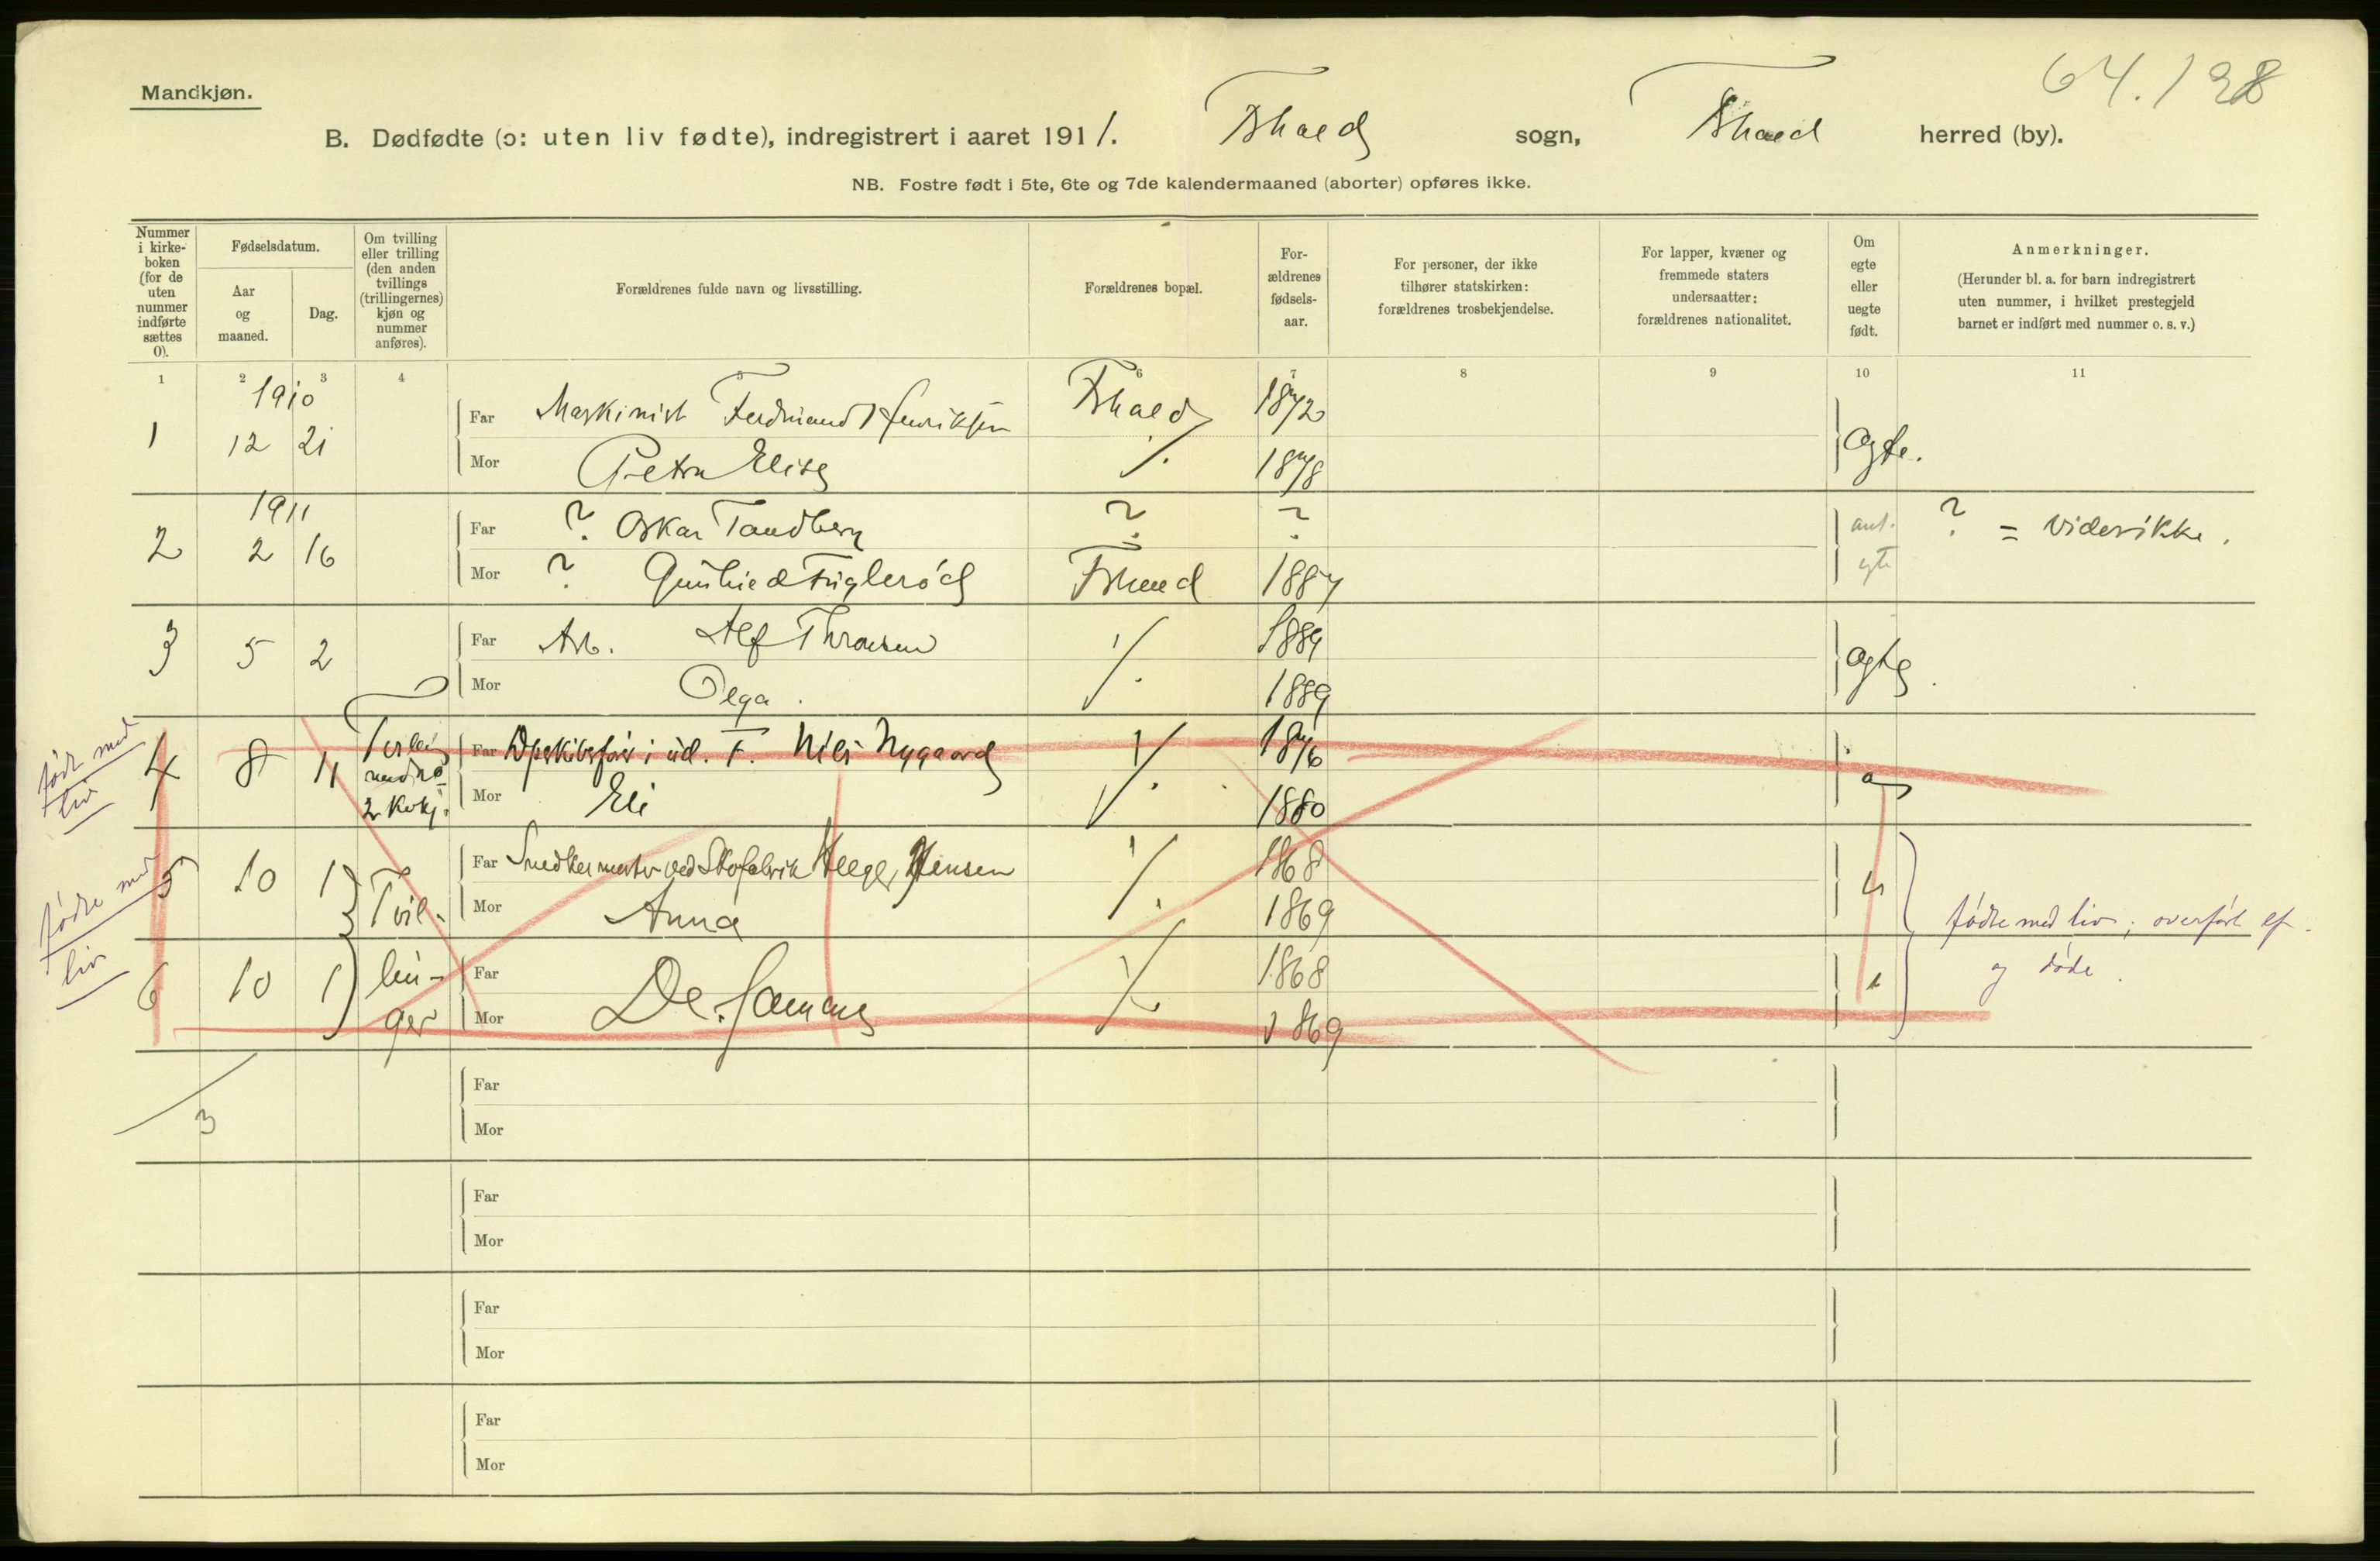 64.128
Mandkjøn.
B. Dødfødte (ɔ: uten liv fødte), indregistrert i aaret 1911. Fhald sogn, Fhald herred (by).
NB. Fostre født i 5te, 6te og 7de kalendermaaned (aborter) opføres ikke.
Nummer i kirke-boken (for de uten nummer indførte sættes 0).
Fødselsdatum.
Aar og maaned.
Dag.
Om tvilling eller trilling (den anden tvillings (trillingernes) kjøn og nummer anføres).
Forældrenes fulde navn og livsstilling.
Forældrenes bopæl.
For-ældrenes fødsels-aar.
For personer, der ikke tilhører statskirken: forældrenes trosbekjendelse.
For lapper, kvæner og fremmede staters undersaatter: forældrenes nationalitet.
Om egte eller uegte født.
Anmerkninger.
(Herunder bl. a. for barn indregistrert uten nummer, i hvilket prestegjeld barnet er indført med nummer o. s. v.)
1 2 3 4 5 6 7 8 9 10 11
1910
1 12 21 Far Maskinist Ferdinand Henriksen Fhald 1872 Ægte.
Mor Petra Elise ⁒ 1878
1911
2 2 16 Far ? Oskar Tandberg ? ? ant. ? = Vides ikke.
Mor ? Gunhild Fuglerød Fhald 1887 egte
3 5 2 Far Arb. Alf Thronsen ⁒ 1889 Ægte.
Mor Olga. 1889
født med liv
4 8 11 2 Kvkj. Far i ud. F. Nils Nygaard ⁒ 1876
Mor Eli ⁒ 1880
fødte med liv
5 10 1 Tvil- Far Snedkermester ved Skofabrik Helge Jensen ⁒ 1868
Mor Anna 1869
fødte med liv; overført lf. og døde.
6 10 1 lin-ger Far De Samme ⁒ 1868
Mor 1869
3
Far
Mor
Far
Mor
Far
Mor
Far
Mor